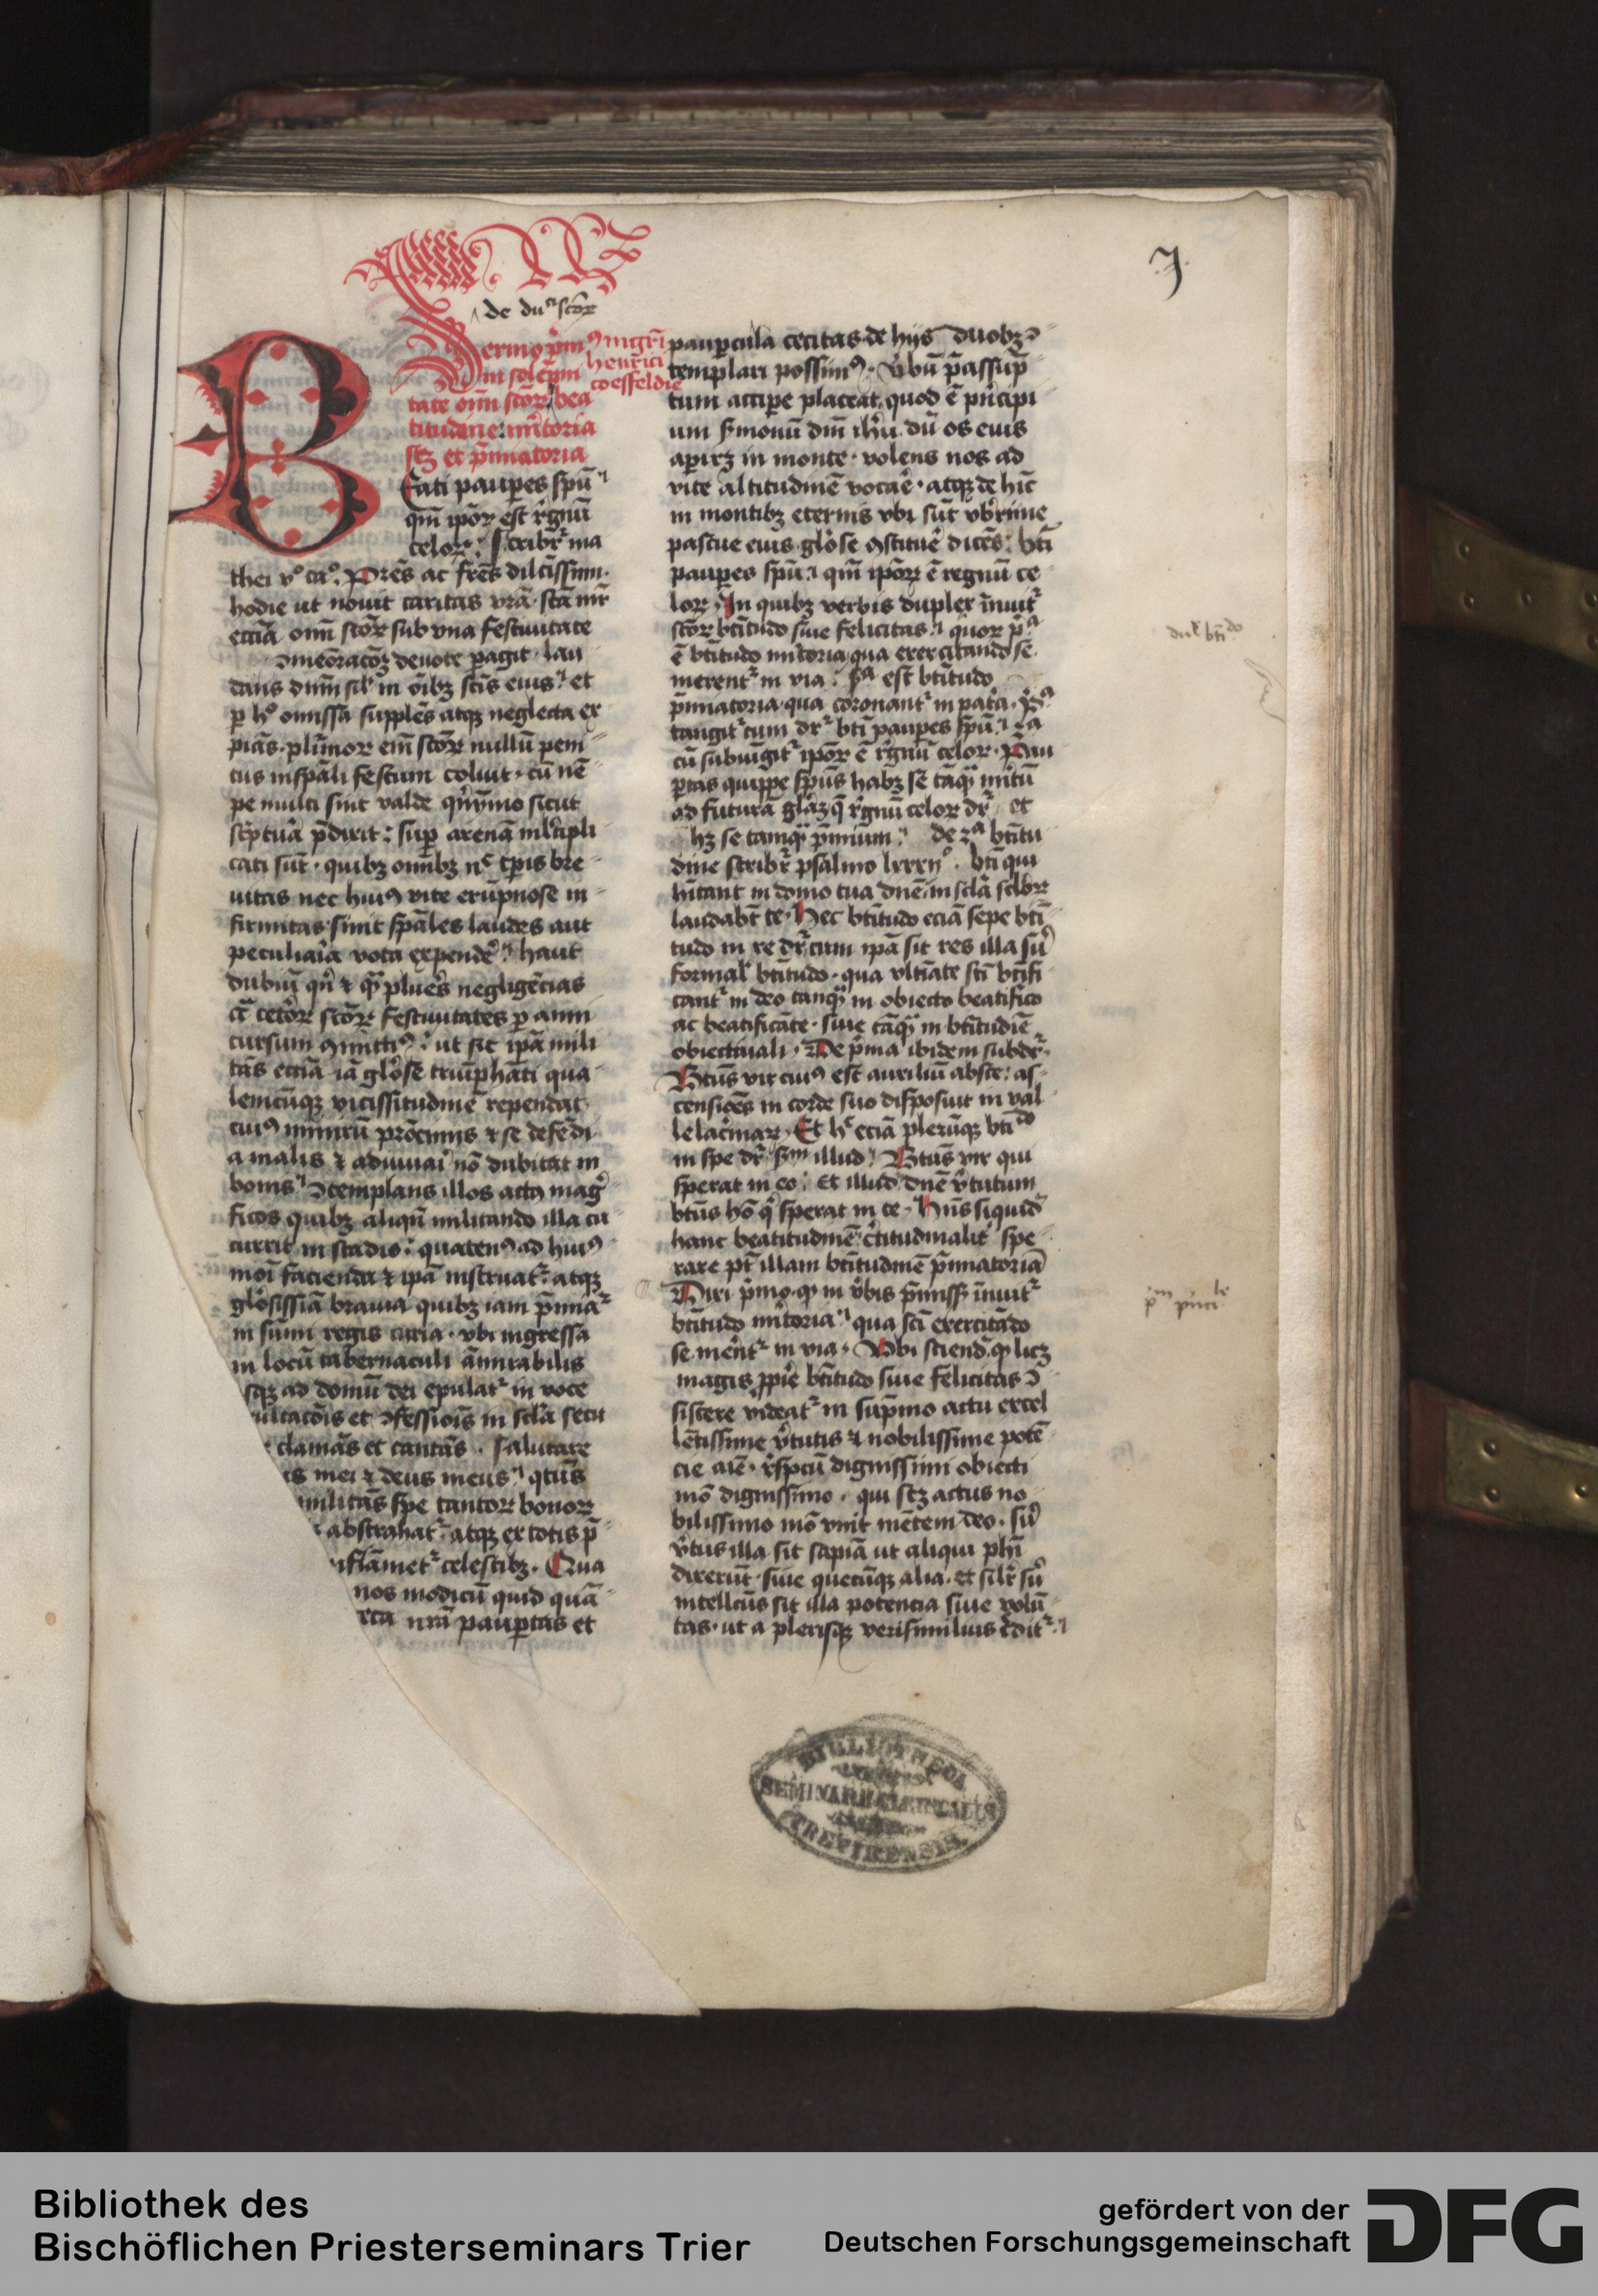 de du sctor
Sermo pm
mgri
henrici
coeffeldie
in solepm
tate oim sctor bea
titudine mitoria
scz et pmiatoria
Beati paupes spu
qm ipor est regnu
celor. Scribr ma
thei v ca. Pres ac fres dilcissimi.
hodie ut nouit caritas vra. sca mr
eccia oim sctor sub vna festiuitate
9meoracoz deuote pagit. lau
dans dnm sil in oibz scis eius et
p ho omissa supples atqz neglecta ex
pias. plimor em sctor nullu peni
tus inspali festum coluit. cu ne
pe multi sint valde qnymo sicut
sciptua pdixit: sup arena mltipli
cati sut. quibz omibz nc tpis bre
uitas nec huius vite erupnose in
firmitas sinit spales laudes aut
peculiaia vota expende haut
dubiu qn et qua plues negligecias
ca cetor sctor festiuitates p anni
cursum 9mittim9. ut sic ipa mili
tas eccia ia glose triuphati qua
lemcuqz vicissitudine rependat
cui9 nimiru procimis et se defedi
a malis et adiuuai no dubitat in
bonis 9templans illos act9 mag
ficos quibz aliqn militando illa cu
currit in stadio: quaten9 ad hui9
moi facienda et ipa instruat. atqz
glosissia brauia quibz iam pmiat
in sumi regis curia. vbi ingressa
in locu tabernaculi amirabilis
sqz ad domu dei epulat in voce
ultacois et 9fessiois in scla seclu
clamas et cantas. Salutare
is mei et deus meus qtus
militas spe tantor bonor
abstrahat atqz ex totis p
nflamet celestibz. Qua
nos modicu quid qua
nra paupertas et
paupcula cecitas de hijs duobz 9
templari possim9. Vbu passup
tum accipe placeat. quod e pncipi
um smonu dni ihu. du os eius
apirz in monte. volens nos ad
vite altitudine vocae. atqz de hic
in montibz eternis vbi sut vbrime
pascue eius glose 9stitue dices: bti
paupes spu qm ipor e regnu ce
lor. In quibz verbis duplex inuit
sctor btitudo siue felicitas quor pa
e btitudo mitoria qua exercitando se
merent in via. Sa est btitudo
pmiatoria qua coronant in patia. pa
tangit cum dr bti paupes spu 2a
cu subiugit ipor e regnu celor. Pau
ptas quippe spus habz se taq mitu
ad futura gliaz q regnu celor dr et
hz se tamq pmium. de 2a btitu
dine scribr psalmo lxxxij. bti qui
hitant in domo tua dne in scla sclor
laudabt te. Hec btitudo ecia sepe bti
tudo in re dr cum ipa sit res illa su
formal btitudo. qua vltiate sci btifi
cant in deo tanq in obiecto beatifico
ac beatificate. siue taq in btitudie
obiectiuali. De pma ibidem subdr.
Btus vir cui9 est auxiliu abs te: as
censioes in corde suo disposuit in val
le lacimar. Et hc ecia pleruqz btido
in spe dr scdm illud Btus vir qui
sperat in eo. Et illud dne vtutum
btus ho q sperat in te. Huis siquid
hanc beatitudine ctitudinalit spe
rare pt illam btitudine pmiatoria
Dixi pmo. q in vbis pmiss inuit
btitudo mitoria qua sci exercitado
se ment in via. Vbi sciend. q licz
magis ppie btitudo siue felicitas 9
sistere videat in supmo actu excel
letissime vtutis et nobilissime pote
cie aie. respcu dignissimi obiecti
mo dignissimo. qui scz actus no
bilissimo mo vnit mentem deo. su
vtus illa sit sapia ut aliqui phi
dixerut. siue quecuqz alia. et silr su
intellcus sit illa potencia siue volu
tas. ut a plerisqz verisimilius cdit.
dux btido
pm pncle
BIBLIOTHECA
SEMINARII CLERICALIS
TREVIRENSIS.
Bibliothek des
Bischöflichen Priesterseminars Trier
gefördert von der
Deutschen Forschungsgemeinschaft
DFG